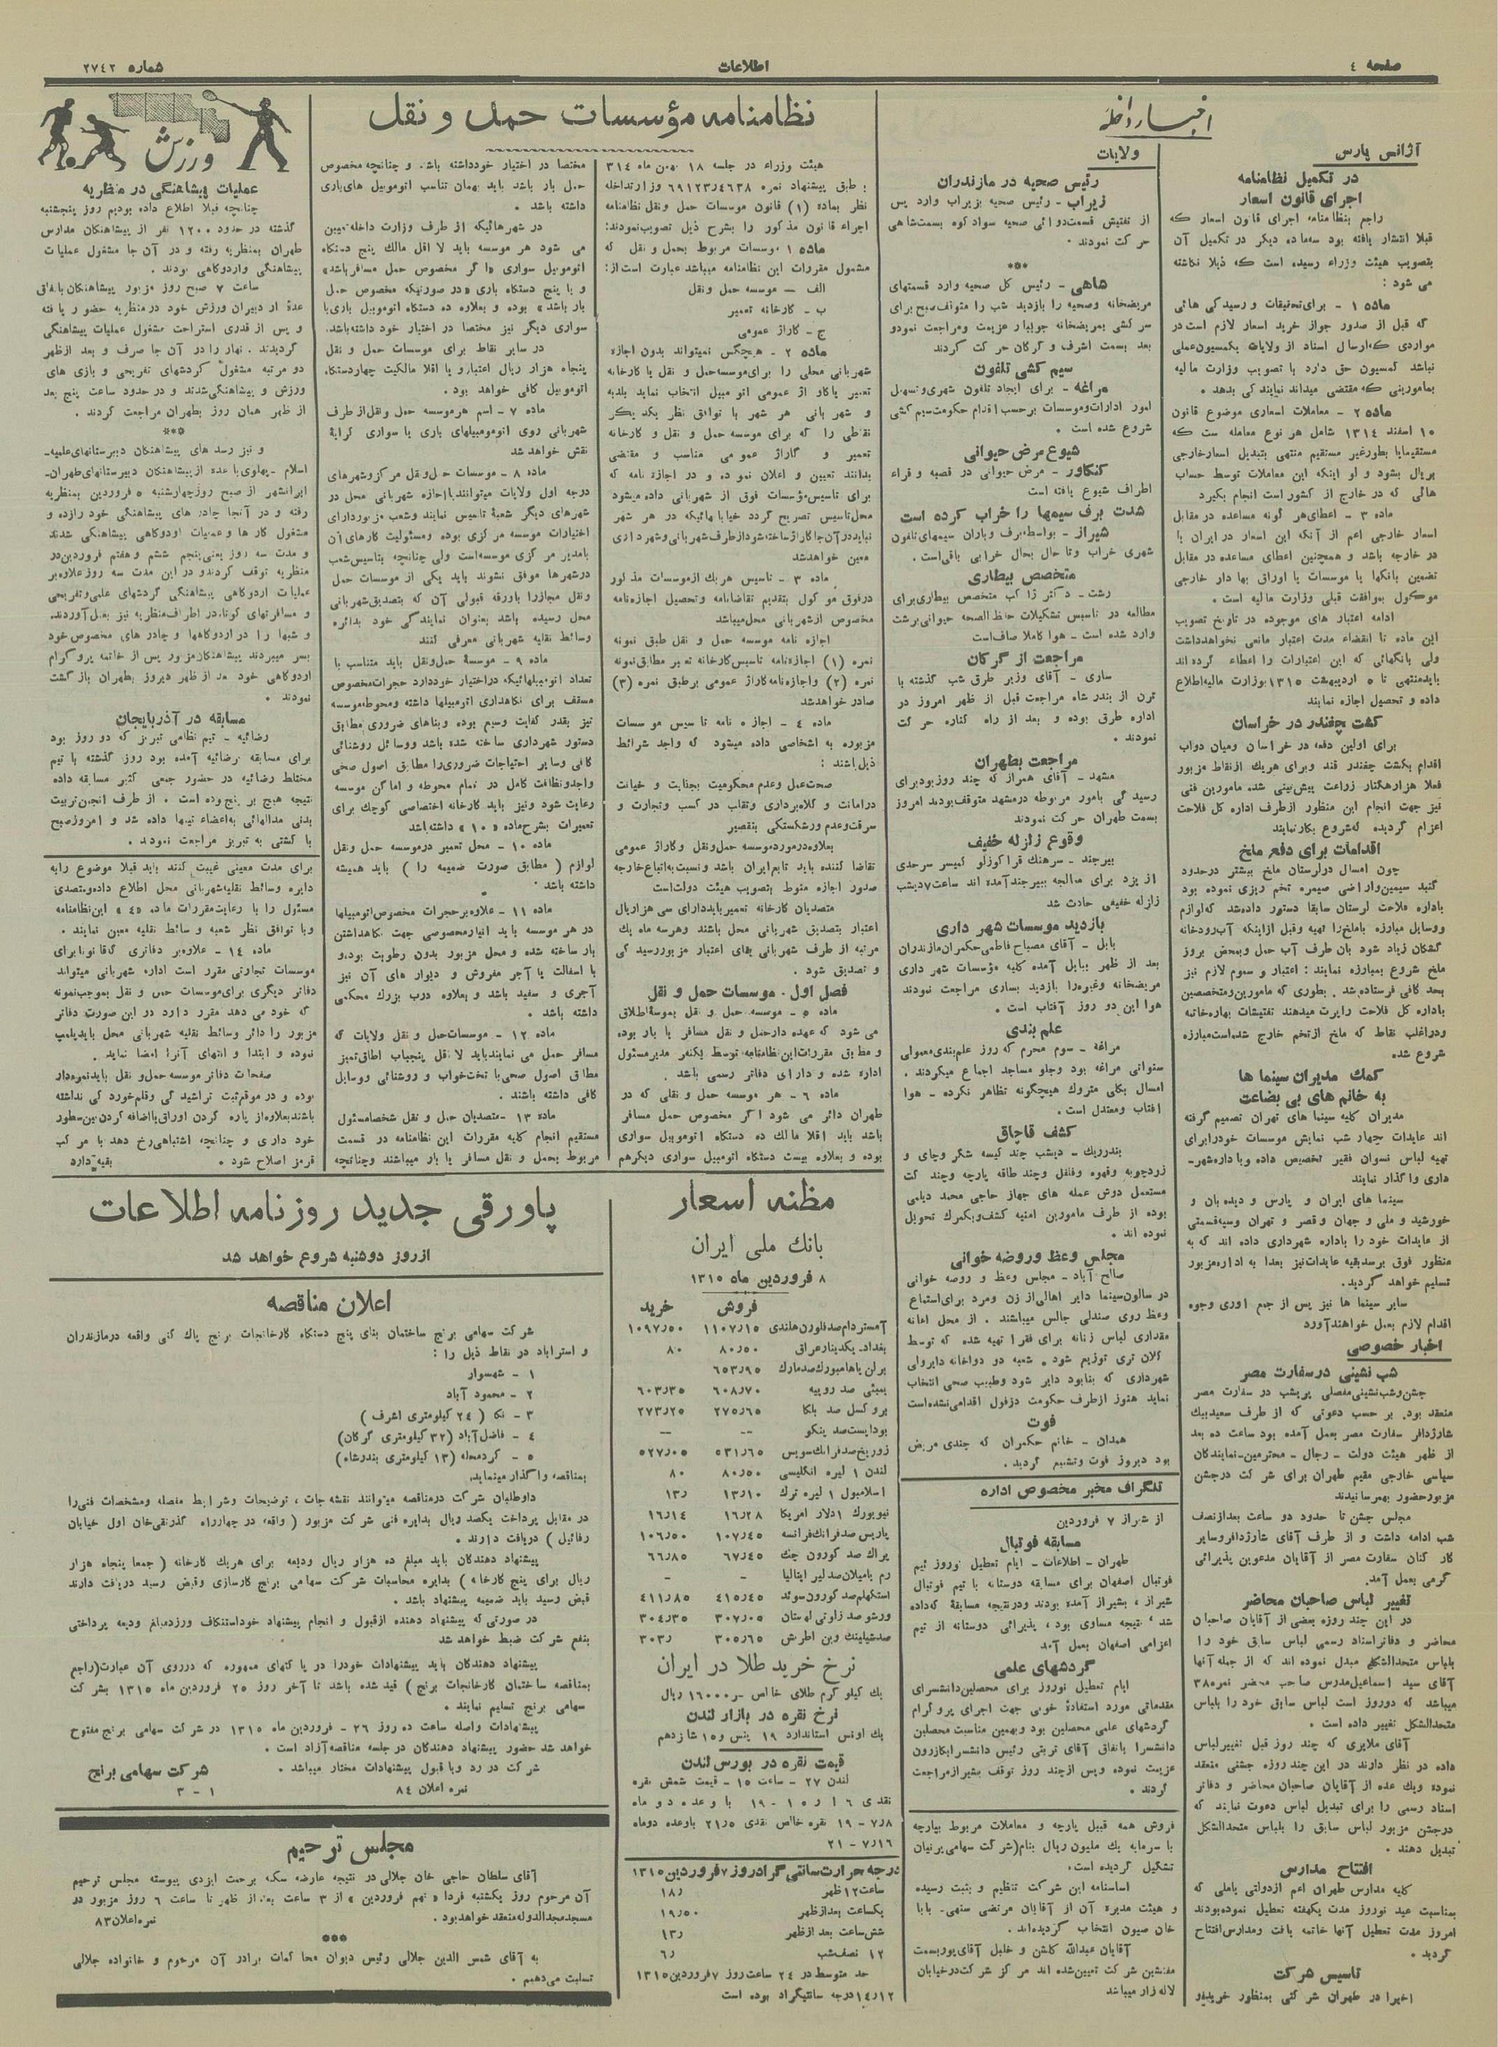 صفحه ٤
اطلاعات
شماره ٢٧٤٢
اخبار داخله
آژانس پارس
در تکمیل نظامنامه
اجرای قانون اسعار
راجع بنظامنامه اجرای قانون اسعار که
قبلا انتشار یافته بود سه‌ماده دیگر در تکمیل آن
بتصویب هیئت وزراء رسیده است که ذیلا نگاشته
می شود :
ماده ۱ - برای تحقیقات و رسیدگی هائی
که قبل از صدور جواز خرید اسعار لازم است در
مواردی که ارسال اسناد از ولایات بکمسیون عملی
نباشد کمسیون حق دارد با تصویب وزارت مالیه
بمامورینی که مقتضی میداند نمایندگی بدهد .
ماده ۲ - معاملات اسعاری موضوع قانون
۱۰ اسفند ۱۳۱٤ شامل هر نوع معامله ست که
مستقیما یا بطور غیر مستقیم منتهی بتبدیل اسعار خارجی
بریال بشود و لو اینکه این معاملات توسط حساب
هائی که در خارج از کشور است انجام بگیرد
ماده ۳ - اعطای هر گونه مساعده در مقابل
اسعار خارجی اعم از آنکه این اسعار در ایران یا
در خارجه باشد و همچنین اعطای مساعده در مقابل
تضمین بانکها یا موسسات یا اوراق بهادار خارجی
موکول بموافقت قبلی وزارت مالیه است .
ادامه اعتبار های موجوده در تاریخ تصویب
این ماده تا انقضاء مدت اعتبار مانعی نخواهد داشت
ولی بانکهائی که این اعتبارات را اعطاء کرده اند
باید منتهی تا ٥ اردیبهشت ۱۳۱٥ بوزارت مالیه اطلاع
داده و تحصیل اجازه نمایند
کشت چغندر در خراسان
برای اولین دفعه در خراسان ومیان دواب
اقدام بکشت چغندر قند وبرای هریک از نقاط مزبور
فعلا هزار هکتار زراعت پیش بینی شده مامورین فنی
نیز جهت انجام این منظور از طرف اداره کل فلاحت
اعزام گردیده که شروع بکار نمایند
اقدامات برای دفع ملخ
چون امسال در لرستان ملخ بیشتر در حدود
گنبد سیمین واراضی صیمره تخم ریزی نموده بود
باداره فلاحت لرستان سابقا دستور داده شد که لوازم
ووسایل مبارزه باملخ را تهیه وقبل از اینکه آب رودخانه
گشکان زیاد شود بان طرف آب حمل وبمحض بروز
ملخ شروع بمبارزه نمایند : اعتبار و سموم لازم نیز
بحد کافی فرستاده شد . بطوری که مامورین ومتخصصین
باداره کل فلاحت راپرت میدهند تفتیشات بهاره خاتمه
ودر اغلب نقاط که ملخ از تخم خارج شده است مبارزه
شروع شده
کمك مدیران سینما ها
به خانم های بی بضاعت
مدیران کلیه سینما های تهران تصمیم گرفته
اند عایدات چهار شب نمایش موسسات خود را برای
تهیه لباس نسوان فقیر تخصیص داده و باداره شهر-
داری واگذار نمایند
سینما های ایران و پارس و دیده بان و
خورشید و ملی و جهان و قصر و تهران وسپه قسمتی
از عایدات خود را باداره شهرداری داده اند که به
منظور فوق برسد بقیه عایدات نیز بعدا به اداره مزبور
تسلیم خواهد گردید.
سایر سینما ها نیز پس از جمع اوری وجوه
اقدام لازم بعمل خواهند آورد
اخبار خصوصی
شب نشینی در سفارت مصر
جشن وشب نشینی مفصلی پریشب در سفارت مصر
منعقد بود. بر حسب دعوتی که از طرف سعید بیك
شارژدافر سفارت مصر بعمل آمده بود ساعت ده بعد
از ظهر هیئت دولت - رجال - محترمین - نمایندگان
سیاسی خارجی مقیم طهران برای شرکت در جشن
مزبور حضور بهمرسانیدند
مجلس جشن تا حدود دو ساعت بعد از نصف
شب ادامه داشت و از طرف آقای شارژدافر وسایر
کارکنان سفارت مصر از آقایان مدعوین پذیرائی
گرمی بعمل آمد.
تغییر لباس صاحبان محاضر
در این چند روزه بعضی از آقایان صاحبان
محاضر و دفاتر اسناد رسمی لباس سابق خود را
بلباس متحدالشکل مبدل نموده اند که از جمله آنها
آقای سید اسماعیل مدرس صاحب محضر نمره ۳۸
میباشد که دوروز است لباس سابق خود را بلباس
متحدالشکل تغییر داده است .
آقای ملایری که چند روز قبل تغییر لباس
داده در نظر دارند در این چند روزه جشنی منعقد
نموده ویك عده از آقایان صاحبان محاضر و دفاتر
اسناد رسمی را برای تبدیل لباس دعوت نمایند که
در جشن مزبور لباس سابق را بلباس متحدالشکل
تبدیل دهند .
افتتاح مدارس
کلیه مدارس طهران اعم از دولتی یا ملی که
بمناسبت عید نوروز مدت یکهفته تعطیل نموده بودند
امروز مدت تعطیل آنها خاتمه یافت ومدارس افتتاح
گردید .
تاسیس شرکت
اخیرا در طهران شرکتی بمنظور خرید و
ولایات
رئیس صحیه در مازندران
زیراب - رئیس صحیه بزیراب وارد پس
از تفتیش قسمت دوائی صحیه سوادکوه بسمت شاهی
حرکت نمودند
***
شاهی - رئیس کل صحیه وارد قسمتهای
مریضخانه وصحیه را بازدید شب را متوقف صبح برای
سرکشی بمریضخانه جویبار عزیمت ومراجعت نمود و
بعد بسمت اشرف و گرگان حرکت کردند
سیم کشی تلفون
مراغه - برای ایجاد تلفون شهری وتسهیل
امور ادارات وموسسات بر حسب اقدام حکومت سیم کشی
شروع شده است .
شیوع مرض حیوانی
کنگاور - مرض حیوانی در قصبه و قراء
اطراف شیوع یافته است
شدت برف سیمها را خراب کرده است
شیراز - بواسطه برف وباران سیمهای تلفون
شهری خراب وتا حال بحال خرابی باقی است .
متخصص بیطاری
رشت - دکتر ژاکب متخصص بیطاری برای
مطالعه در تاسیس تشکیلات حفظ الصحه حیوانی برشت
وارد شده است - هوا کاملا صاف است
مراجعت از گرگان
ساری - آقای وزیر طرق شب گذشته با
ترن از بندر شاه مراجعت قبل از ظهر امروز در
اداره طرق بوده و بعد از راه کناره حرکت
نمودند .
مراجعت بطهران
مشهد - آقای همراز که چند روز بود برای
رسیدگی بامور مربوطه در مشهد متوقف بودند امروز
بسمت طهران حرکت نمودند
وقوع زلزله خفیف
بیرجند - سرهنگ قراگوزلو کمیسر سرحدی
از یزد برای معالجه ببیرجند آمده اند ساعت ٧ دیشب
زلزله خفیفی حادث شد
بازدید موسسات شهر داری
بابل - آقای مصباح فاطمی حکمران مازندران
بعد از ظهر ببابل آمده کلیه مؤسسات شهر داری
مریضخانه وغیره را بازدید بساری مراجعت نمودند
هوا این دو روز آفتاب است .
علم بندی
مراغه - سوم محرم که روز علم بندی معمولی
سنواتی مراغه بود وجلو مساجد اجماع میکردند .
امسال بکلی متروك هیچگونه تظاهر نکرده - هوا
افتاب ومعتدل است .
کشف قاچاق
بندر ریک - دیشب چند کیسه شکر وچای و
زردچوبه وقهوه وفلفل وچند طاقه پارچه وچند کت
مستعمل دوش عمله های جهاز حاجی محمد دیلمی
بوده از طرف مامورین امنیه کشف وبگمرك تحویل
نموده اند .
مجلس وعظ وروضه خوانی
صالح آباد - مجلس وعظ و روضه خوانی
در سالون سینما دایر اهالی از زن ومرد برای استماع
وعظ روی صندلی جالس میباشند . از محل اعانه
مقداری لباس زنانه برای فقرا تهیه شده که توسط
کلانتری توزیع شود . شعبه دو دواخانه دایر ولی
شهرداری که بنابود دایر شود وطبیب صحی انتخاب
نماید هنوز از طرف حکومت دزفول اقدامی نشده است
فوت
همدان - خانم حکمران که چندی مریض
بود دیروز فوت وتشییع گردید .
تلگراف مخبر مخصوص اداره
از شیراز ٧ فروردین
مسابقه فوتبال
طهران - اطلاعات - ایام تعطیل نوروز تیم
فوتبال اصفهان برای مسابقه دوستانه با تیم فوتبال
شیراز ، بشیراز آمده بودند ودر نتیجه مسابقهٔ که داده
شد ، نتیجه مساوی بود ، پذیرائی دوستانه از تیم
اعزامی اصفهان بعمل آمد
گردشهای علمی
ایام تعطیل نوروز برای محصلین دانشسرای
مقدماتی مورد استفادهٔ خوبی جهت اجرای پروگرام
گردشهای علمی محصلین بود وبهمین مناسبت محصلین
دانشسرا باتفاق آقای تربتی رئیس دانشسرا بکازرون
عزیمت نموده وپس از چند روز توقف بشیراز مراجعت
کردند .
فروش همه قبیل پارچه و معاملات مربوط بپارچه
با سرمایه یك ملیون ریال بنام (شرکت سهامی پرنیان
تشکیل گردیده است .
اساسنامه این شرکت تنظیم و بثبت رسیده
و هیئت مدیره آن از آقایان مرتضی سنهی- بابا
خان صیون انتخاب گردیده‌اند .
آقایان عبدالله گلشن و خلیل آقای پور بسمت
مفتشین شرکت تعیین شده اند مرکز شرکت در خیابان
لاله زار میباشد
نظامنامه مؤسسات حمل و نقل
هیئت وزراء در جلسه ۱۸ بهمن ماه ۳۱٤
بر طبق پیشنهاد نمره ٦٩١٢٣ر٤٦٣٨ وزارتداخله
نظر بماده (۱) قانون موسسات حمل ونقل نظامنامه
اجراء قانون مذکور را بشرح ذیل تصویب نمودند:
ماده ۱ موسسات مربوط بحمل و نقل که
مشمول مقررات این نظامنامه میباشد عبارت است از:
الف - موسسه حمل ونقل
ب - کارخانه تعمیر
ج - گاراژ عمومی
ماده ۲ - هیچکس نمیتواند بدون اجازه
شهربانی محلی را برای موسسه حمل و نقل یا کارخانه
تعمیر یا گاراژ عمومی اتومبیل انتخاب نماید بلدیه
و شهربانی هر شهر با توافق نظر یکدیگر
نقاطی را که برای موسسه حمل و نقل و کارخانه
تعمیر و گاراژ عمومی مناسب و مقتضی
بدانند تعیین و اعلان نموده و در اجازه نامه که
برای تاسیس مؤسسات فوق از شهربانی داده میشود
محل تاسیس تصریح گردد خیابانهائیکه در هر شهر
نباید در آن جا گاراژ ساخته شود از طرف شهربانی وشهر داری
معین خواهد شد
ماده ۳ - تاسیس هریك از موسسات مذکور
در فوق موکول بتقدیم تقاضانامه وتحصیل اجازه‌نامه
مخصوص از شهربانی محل میباشد
اجازه نامه موسسه حمل و نقل طبق نمونه
نمره (۱) اجازه نامه تاسیس کارخانه تعمیر مطابق نمونه
نمره (۲) واجازه نامه گاراژ عمومی بر طبق نمره (۳)
صادر خواهد شد
ماده ٤ - اجازه نامه تاسیس موسسات
مزبوره به اشخاصی داده میشود که واجد شرائط
ذیل باشند :
صحت عمل وعدم محکومیت بجنایت و خیانت
در امانت و کلاه برداری وتقلب در کسب وتجارت و
سرقت وعدم ورشکستگی بتقصیر
بعلاوه در مورد موسسه حمل ونقل وگاراژ عمومی
تقاضا کننده باید تابع ایران باشد ونسبت به اتباع خارجه
صدور اجازه منوط بتصویب هیئت دولت است
متصدیان کارخانه تعمیر باید دارای سی هزار ریال
اعتبار بتصدیق شهربانی محل باشند وهر سه ماه یك
مرتبه از طرف شهربانی بقای اعتبار مزبور رسیدگی
و تصدیق شود .
فصل اول . موسسات حمل و نقل
ماده ٥ - موسسه حمل و نقل بموسسهٔ اطلاق
می شود که عهده دار حمل و نقل مسافر یا بار بوده
و مطابق مقررات این نظامنامه توسط یکنفر مدیر مسئول
اداره شده و دارای دفاتر رسمی باشد .
ماده ٦ - هر موسسه حمل و نقلی که در
طهران دائر می شود اگر مخصوص حمل مسافر
باشد باید اقلا مالك ده دستگاه اتومبیل سواری
بوده و بعلاوه بیست دستگاه اتومبیل سواری دیگر هم
مختصا در اختیار خود داشته باشد و چنانچه مخصوص
حمل بار باشد باید بهمان تناسب اتومبیل های باری
داشته باشد .
در شهرهائیکه از طرف وزارت داخله معین
می شود هر موسسه باید لا اقل مالك پنج دستگاه
اتومبیل سواری «اگر مخصوص حمل مسافر باشد»
و یا پنج دستگاه باری «در صورتیکه مخصوص حمل
بار باشد» بوده و بعلاوه ده دستگاه اتومبیل باری یا
سواری دیگر نیز مختصا در اختیار خود داشته باشد.
در سایر نقاط برای موسسات حمل و نقل
پنجاه هزار ریال اعتبار و یا اقلا مالکیت چهار دستگاه
اتومبیل کافی خواهد بود .
ماده ٧ - اسم هر موسسه حمل و نقل از طرف
شهربانی روی اتومبیلهای باری یا سواری کرایهٔ
نقش خواهد شد
ماده ٨ - موسسات حمل ونقل مرکز وشهرهای
درجه اول ولایات میتوانند با اجازه شهربانی محل در
شهرهای دیگر شعبهٔ تاسیس نمایند وشعب مزبور دارای
اختیارات موسسه مرکزی بوده ومسئولیت کارهای آن
بامدیر مرکزی موسسه است ولی چنانچه بتاسیس شعب
در شهرها موفق نشوند باید یکی از موسسات حمل
ونقل مجاز را باورقه قبولی آن که بتصدیق شهربانی
محل رسیده باشد بعنوان نمایندگی خود بدائره
وسائط نقلیه شهربانی معرفی کنند
ماده ٩ - موسسهٔ حمل ونقل باید متناسب با
تعداد اتومبیلهائیکه در اختیار خود دارد حجرات مخصوص
مسقف برای نگاهداری اتومبیلها داشته ومحوطه موسسه
نیز بقدر کفایت وسیع بوده وبناهای ضروری مطابق
دستور شهرداری ساخته شده باشد ووسائل روشنائی
کافی وسایر احتیاجات ضروری را مطابق اصول صحی
واجد ونظافت کامل در تمام محوطه و اماکن موسسه
رعایت شود ونیز باید کارخانه اختصاصی کوچك برای
تعمیرات بشرح ماده «۱۰» داشته باشد
ماده ۱۰ - محل تعمیر در موسسه حمل ونقل
لوازم ( مطابق صورت ضمیمه را ) باید همیشه
داشته باشد .
ماده ۱۱ - علاوه بر حجرات مخصوص اتومبیلها
در هر موسسه باید انبار مخصوصی جهت نگاهداشتن
بار ساخته شده و محل مزبور بدون رطوبت بوده و
با اسفالت یا آجر مفروش و دیوار های آن نیز
آجری و سفید باشد و بعلاوه درب بزرك محکمی
داشته باشد .
ماده ۱۲ - موسسات حمل و نقل ولایات که
مسافر حمل می نمایند باید لااقل پنج باب اطاق تمیز
مطابق اصول صحی با تخت خواب و روشنائی ووسایل
کافی داشته باشند .
ماده ۱۳ - متصدیان حمل و نقل شخصا مسئول
مستقیم انجام کلیه مقررات این نظامنامه در قسمت
مربوط بحمل و نقل مسافر یا بار میباشند وچنانچه
ورزش
عملیات پیشاهنگی در منظریه
چنانچه قبلا اطلاع داده بودیم روز پنجشنبه
گذشته در حدود ۱۲۰۰ نفر از پیشاهنگان مدارس
طهران بمنظریه رفته و در آن جا مشغول عملیات
پیشاهنگی واردوگاهی بودند .
ساعت ٧ صبح روز مزبور پیشاهنگان باتفاق
عدهٔ از دبیران ورزش خود در منظریه حضور یافته
و پس از قدری استراحت مشغول عملیات پیشاهنگی
گردیدند . نهار را در آن جا صرف و بعد از ظهر
دو مرتبه مشغول گردشهای تفریحی و بازی های
ورزش و پیشاهنگی شدند و در حدود ساعت پنج بعد
از ظهر همان روز بطهران مراجعت کردند .
***
و نیز رسد های پیشاهنگان دبیرستانهای علمیه-
اسلام - پهلوی با عدهٔ از پیشاهنگان دبیرستانهای طهران-
ایرانشهر از صبح روز چهارشنبه ٥ فروردین بمنظریه
رفته و در آنجا چادر های پیشاهنگی خود را زده و
مشغول کار ها و عملیات اردوگاهی پیشاهنگی شدند
و مدت سه روز یعنی پنجم ششم و هفتم فروردین در
منظریه توقف کردند و در این مدت سه روز علاوه بر
عملیات اردوگاهی پیشاهنگی گردشهای علمی وتفریحی
و مسافرتهای کوتاه در اطراف منظریه نیز بعمل آوردند.
و شبها را در اردوگاهها و چادر های مخصوص خود
بسر میبردند پیشاهنگان مزبور پس از خاتمه پروگرام
اردوگاهی خود بعد از ظهر دیروز بطهران بازگشت
نمودند .
مسابقه در آذربایجان
رضائیه - تیم نظامی تبریز که دو روز بود
برای مسابقه رضائیه آمده بود روز گذشته با تیم
مختلط رضائیه در حضور جمعی کثیر مسابقه داده
نتیجه هیچ بر پنج بوده است . از طرف انجمن تربیت
بدنی مدالهائی به اعضاء تیمها داده شد و امروز صبح
با کشتی به تبریز مراجعت نمودند .
برای مدت معینی غیبت کنند باید قبلا موضوع را به
دایره وسائط نقلیه شهربانی محل اطلاع داده ومتصدی
مسئول را با رعایت مقررات ماده «٤» این نظامنامه
وبا توافق نظر شعبه و سائط نقلیه معین نمایند .
ماده ۱٤ - علاوه بر دفاتری که قانونا برای
موسسات تجارتی مقرر است اداره شهربانی میتواند
دفاتر دیگری برای موسسات حمل و نقل بموجب نمونه
که خود می دهد مقرر دارد در این صورت دفاتر
مزبور را دائر وسائط نقلیه شهربانی محل باید پلمپ
نموده و ابتدا و انتهای آنرا امضا نماید .
صفحات دفاتر موسسه حمل و نقل باید نمره دار
بوده و در موقع ثبت تراشیدگی وقلم خوردگی نداشته
باشند بعلاوه از پاره کردن اوراق یا اضافه کردن بین سطور
خود داری و چنانچه اشتباهی رخ دهد با مرکب
قرمز اصلاح شود .
بقیه دارد
مظنه اسعار
بانك ملی ایران
٨ فروردین ماه ۱۳۱٥
فروش خرید
آمستردام صد فلورن هلندی ۱۱۰٧ر۱٥ ۱۰٩٧ر٥۰
بغداد یکدینار عراق ٨۰ر٥۰ ٨۰
برلن یا هامبورك صد مارك ٦٥۳ر٩٥
بمبئی صد روپیه ٦۰٨ر٧۰ ٦۰۳ر۳٥
بروکسل صد بلگا ۲٧٥ر٦٥ ۲٧۳ر۲٥
بوداپست صد پنگو -- --
زوریخ صد فرانك سویس ٥۳۱ر٦٥ ٥۲٧ر۰٥
لندن ۱ لیره انگلیسی ٨۰ر٥۰ ٨۰
اسلامبول ۱ لیره ترك ۱۳ر۱۰ ۱۳ر
نیویورك ۱ دلار امریکا ۱٦ر۲٨ ۱٦ر۱٤
پاریس صد فرانك فرانسه ۱۰٧ر٤٥ ۱۰٦ر٥۰
پراك صد کورون چك ٦٧ر٤٥ ٦٦ر٨٥
رم یا میلان صد لیر ایتالیا - -
استکهلم صد کورون سوئد ٤۱٥ر٤٥ ٤۱۱ر٨٥
ورشو صد زلوتی لهستان ۳۰٧ر۰٥ ۳۰٤ر۳٥
صد شیلینك وین اطریش ۳۰٥ر٦٥ ۳۰۳ر
نرخ خرید طلا در ایران
یك کیلو گرم طلای خالص ــر۱٦۰۰۰ ریال
نرخ نقره در بازار لندن
یك اونس استاندارد ۱٩ پنس و۱٥ شانزدهم
قیمت نقره در بورس لندن
لندن ۲٧ - ساعت ۱٥ - قیمت شمش نقره
نقدی ۱٦ر۱٥-۱٩ با وعده دو ماه
٨ر٧-۱٩ نقره خالص نقدی ۲۱٫٥ باوعده دوماه
۱٦ر٧-۲۱
درجه حرارت سانتی گراد روز ٧ فروردین ۱۳۱٥
ساعت ۱۲ ظهر ۱٨ر
یکساعت بعد از ظهر ۱٩ر٥۰
شش ساعت بعد از ظهر ۱۳ر
۱۲ نصف شب ٦ر
حد متوسط در ۲٤ ساعت روز ٧ فروردین ۱۳۱٥
۱٤ر۱۲ درجه سانتیگراد بوده است
پاورقی جدید روزنامه اطلاعات
از روز دوشنبه شروع خواهد شد
اعلان مناقصه
شرکت سهامی برنج ساختمان بنای پنج دستگاه کارخانجات برنج پاك کنی واقعه در مازندران
و استراباد در نقاط ذیل را :
۱ - شهسوار
۲ - محمود آباد
۳ - نکا ( ۲٤ کیلومتری اشرف )
٤ - فاضل آباد (۳۲ کیلومتری گرگان)
٥ - کردمحله (۱۳ کیلومتری بندرشاه)
بمناقصه واگذار مینماید.
داوطلبان شرکت در مناقصه میتوانند نقشه جات ، توضیحات وشرایط مفصله ومشخصات فنی را
در مقابل پرداخت یکصد ریال بدایره فنی شرکت مزبور ( واقعه در چهارراه کنت نقی خان اول خیابان
رفائیل ) دریافت دارند .
پیشنهاد دهندگان باید مبلغ ده هزار ریال ودیعه برای هریك کارخانه ( جمعا پنجاه هزار
ریال برای پنج کارخانه ) بدایره محاسبات شرکت سهامی برنج کارسازی وقبض رسید دریافت دارند
قبض رسید باید ضمیمه پیشنهاد باشد .
در صورتی که پیشنهاد دهنده از قبول و انجام پیشنهاد خود استنکاف ورزد مبلغ ودیعه پرداختی
بنفع شرکت ضبط خواهد شد
پیشنهاد دهندگان باید پیشنهادات خود را در پاکتهای ممهوره که در روی آن عبارت (راجع
بمناقصه ساختمان کارخانجات برنج ) قید شده باشد تا آخر روز ۲٥ فروردین ماه ۱۳۱٥ بشرکت
سهامی برنج تسلیم نمایند .
پیشنهادات واصله ساعت ده روز ۲٦ - فروردین ماه ۱۳۱٥ در شرکت سهامی برنج مفتوح
خواهد شد حضور پیشنهاد دهندگان در جلسه مناقصه آزاد است .
شرکت در رد ویا قبول پیشنهادات مختار میباشد .
شرکت سهامی برنج
نمره اعلان ٨٤
۱ - ۳
مجلس ترحیم
آقای سلطان حاجی خان جلالی در نتیجه عارضه سکته برحمت ایزدی پیوسته مجلس ترحیم
آن مرحوم روز یکشنبه فردا « نهم فروردین » از ۳ ساعت بعد از ظهر تا ساعت ٦ روز مزبور در
مسجد مجدالدوله منعقد خواهد بود .
نمره اعلان ٨۳
***
به آقای شمس الدین جلالی رئیس دیوان محاکمات برادر آن مرحوم و خانواده جلالی
تسلیت می‌دهیم .